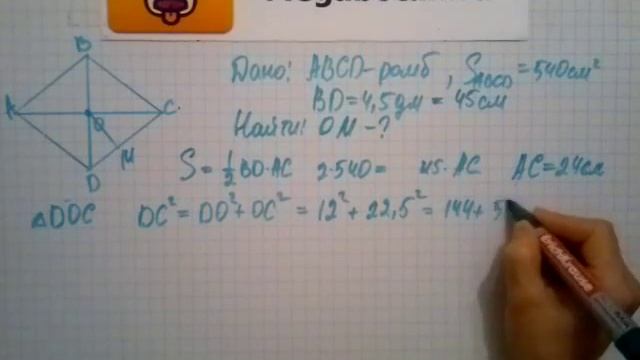 B
A
C
O
M
D
Дано: ABCD-ромб, S_ABCD = 540 см²
BD = 4,5 дм = 45 см
Найти: OM - ?
S = 1/2 BD·AC 2·540 = 45·AC AC = 24 см
△DOC DC² = DO² + OC² = 12² + 22,5² = 144 + 5